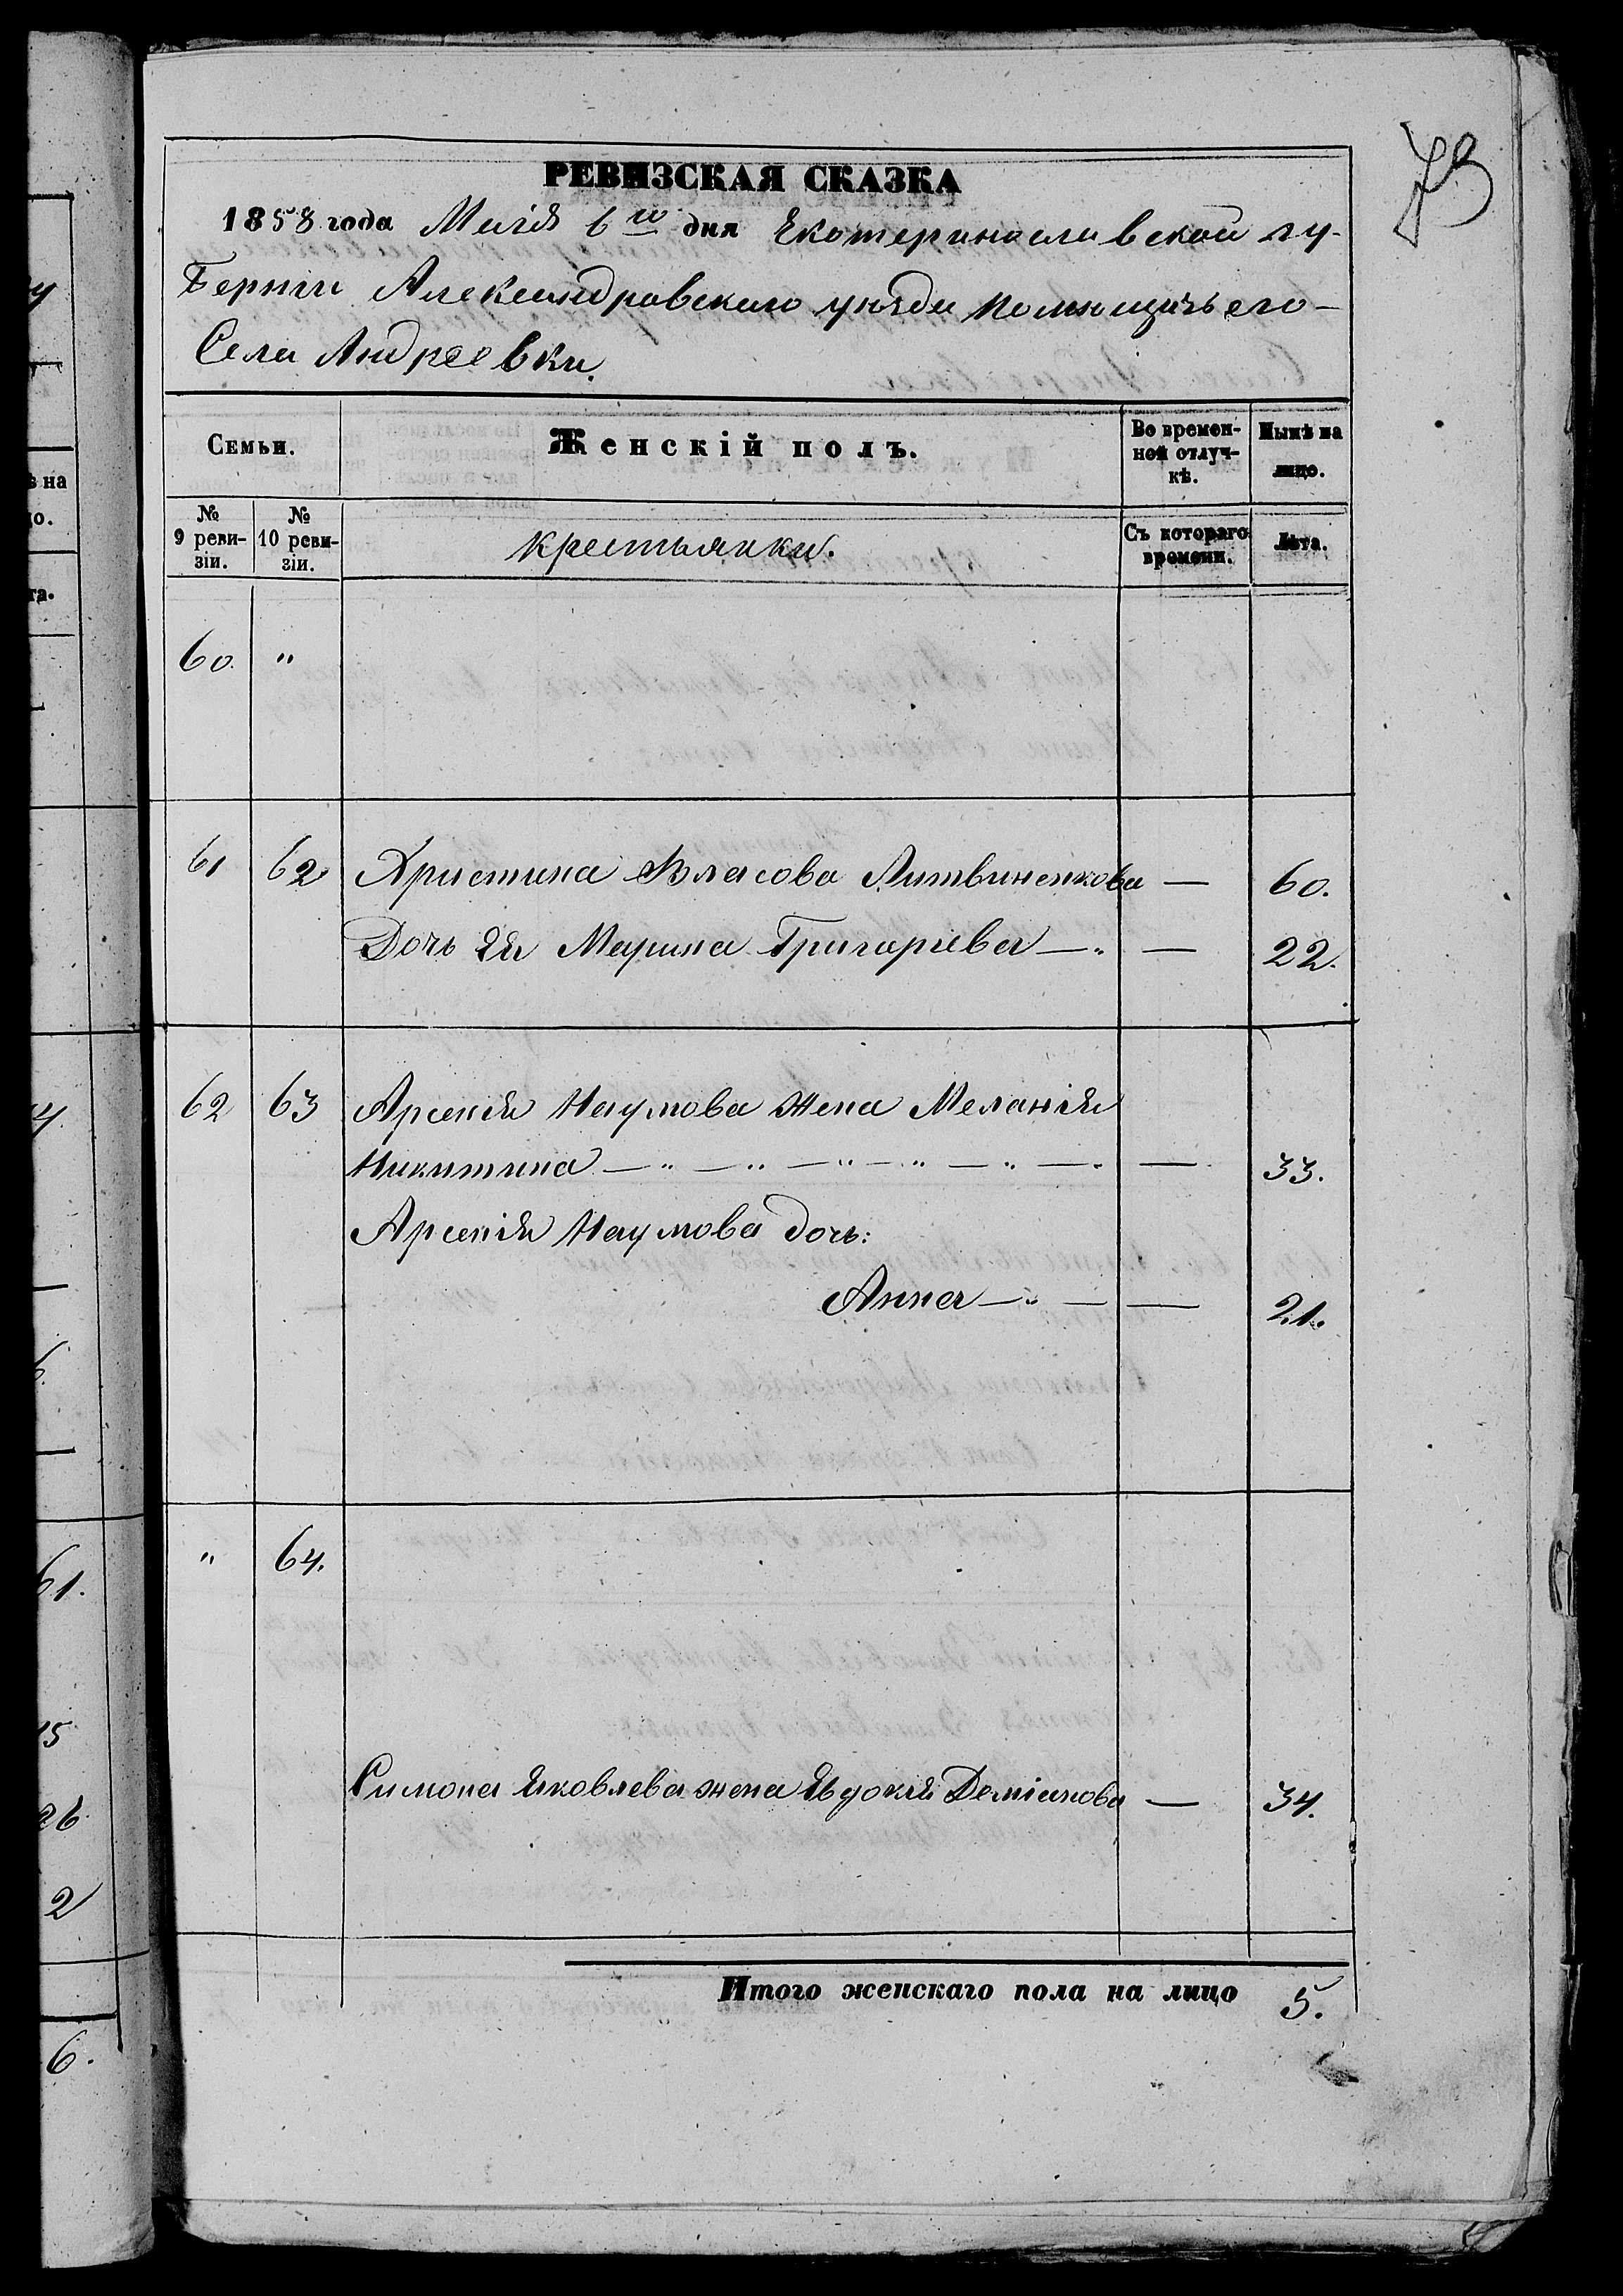 73
РЕВИЗСКАЯ СКАЗКА
1858 года Маія 6го дня Екатеринославской гу-
берніи Александровскаго уѣзда помѣщичьего
Села Андреевки.
Семьи. Женскій полъ. Во времен-ной отлуч-кѣ. Нынѣ на лицо.
№ 9 реви-зіи. № 10 реви-зіи. крестьянки. Съ котораго времени. Лѣта.
60. "
61 62 Христина Власова Литвиненкова — 60.
Дочь Ея Марина Григорьева — " — 22.
62 63 Арсенія Наумова жена Меланія
Никитина — " — " — " — " — " — " — 33.
Арсенія Наумова дочь:
Анна — " — — 21.
" 64.
Симона Яковлева жена Евдокія Деміанова — 34.
Итого женскаго пола на лицо 5.
ѣ на
о.
та.
4
61.
15
26
2
6.